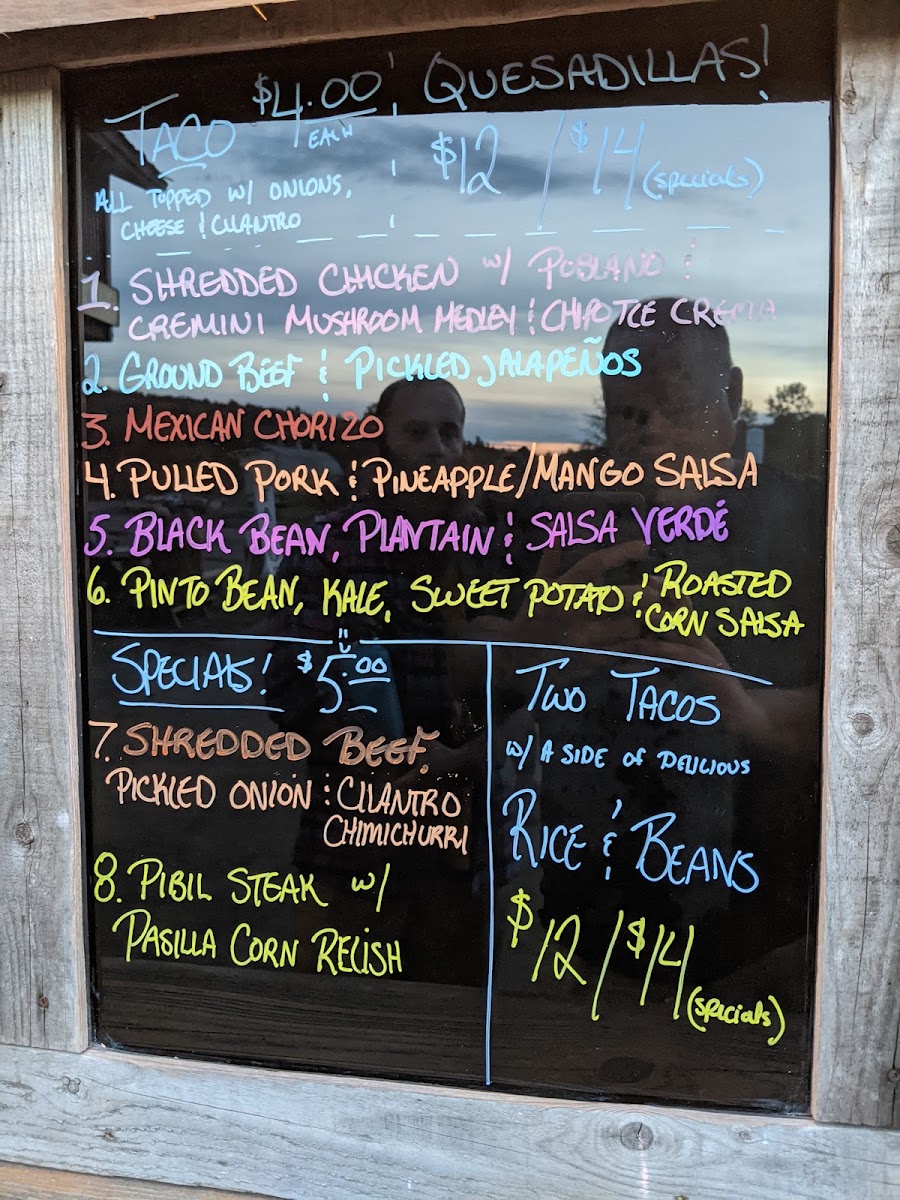 TACO $4.00 EACH
ALL TOPPED W/ ONIONS,
CHEESE & CILANTRO
QUESADILLAS!
$12 / $14 (specials)
1. SHREDDED CHICKEN w/ POBLANO &
CREMINI MUSHROOM MEDLEY & CHIPOTLE CREMA
2. GROUND BEEF & PICKLED JALAPEÑOS
3. MEXICAN CHORIZO
4. PULLED PORK & PINEAPPLE/MANGO SALSA
5. BLACK BEAN, PLANTAIN & SALSA VERDÉ
6. PINTO BEAN, KALE, SWEET POTATO & ROASTED
CORN SALSA
SPECIALS! $5.00
7. SHREDDED BEEF,
PICKLED ONION & CILANTRO
CHIMICHURRI
8. PIBIL STEAK w/
PASILLA CORN RELISH
TWO TACOS
w/ A SIDE OF DELICIOUS
RICE & BEANS
$12/$14
(specials)